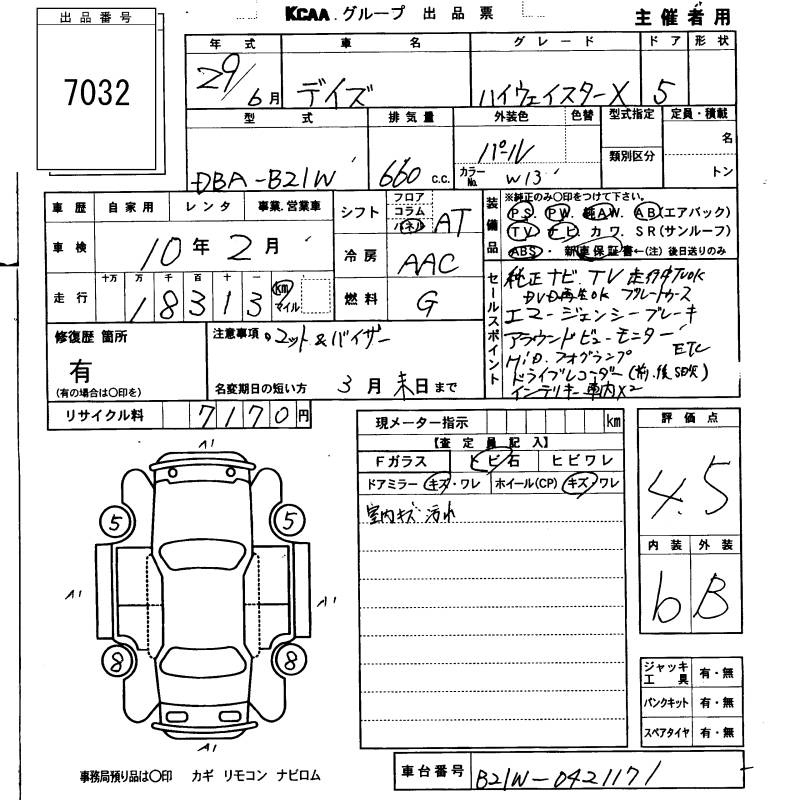 KCAA グループ 出品票
主催者用
出品番号
7032
年式 車名 グレード ドア 形状
29/6月 デイズ ハイウェイスターX 5
型式 排気量 外装色 色替 型式指定 定員・積載
DBA-B21W 660 c.c. パール カラーNo. W13 類別区分 名 トン
車歴 自家用 レンタ 事業.営業車
車検 10年2月
走行 十万 万 千 百 十 一
18313 km マイル
シフト フロア コラム パネル AT
冷房 AAC
燃料 G
装備品 ※純正のみ〇印をつけて下さい。
PS. PW. 純AW. AB(エアバック)
TV ナビ カワ. SR(サンルーフ)
ABS・新車保証書←(注)後日送りのみ
セールスポイント
純正ナビ.TV 走行中TVOK
DVD再生OK ブルートゥース
エマージェンシーブレーキ
アラウンドビューモニター
HiD フォグランプ ETC
ドライブレコーダー(前.後SD欠)
インテリキー車内X2
修復歴 箇所
有
(有の場合は〇印を)
注意事項 マット&バイザー
名変期日の短い方 3月末日まで
リサイクル料 7170円
現メーター指示 km
【査定員記入】
Fガラス トビ石 ヒビワレ
ドアミラー キズ・ワレ ホイール(CP) キズ/ワレ
室内キズ 汚れ
評価点
4.5
内装 外装
b B
A1
5 5
A1 A1
8 8
A1
ジャッキ工具 有・無
パンクキット 有・無
スペアタイヤ 有・無
事務局預り品は〇印 カギ リモコン ナビロム
車台番号 B21W-0421171